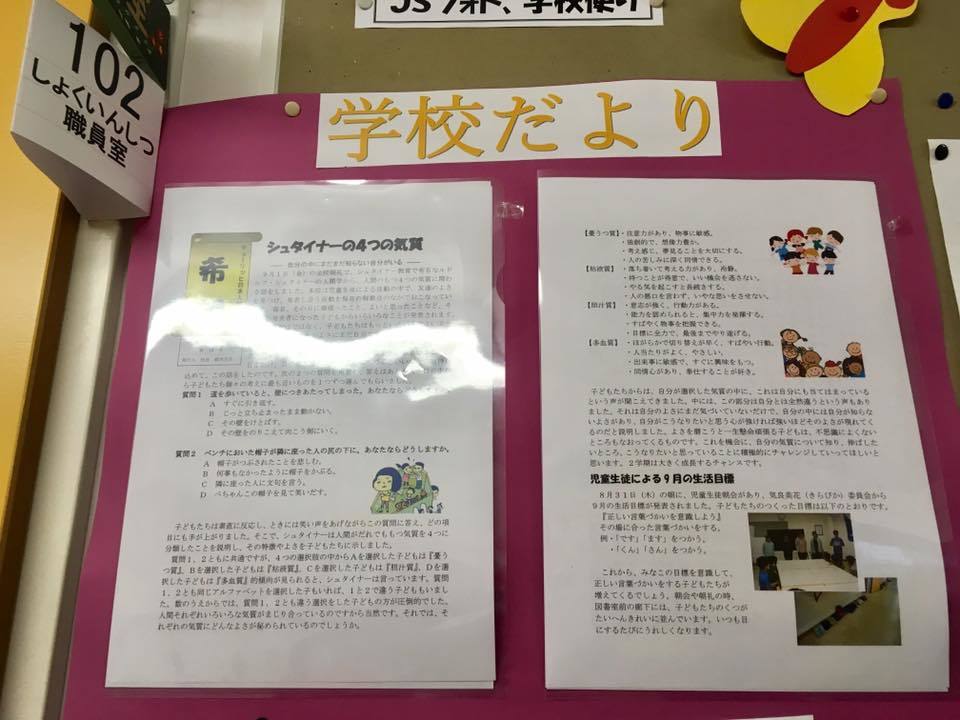 JSフォト、学校便り
102
しょくいんしつ
職員室
学校だより
希
シュタイナーの4つの気質
― 自分の中にまだまだ知らない自分がいる ―
込めて、この話をしたのです。次の2つの質問を
質問1 道を歩いていると、壁につきあたってしまった。あなたなら
A すぐに引き返す。
B じっと立ち止まったまま動かない。
C その壁をけとばす。
D その壁をのりこえて向こう側にいく。
質問2 ベンチにおいた帽子が隣に座った人の尻の下に。あなたならどうしますか。
A 帽子がつぶされたことを悲しむ。
B 何事もなかったように帽子をかぶる。
C 隣に座った人に文句を言う。
D ぺちゃんこの帽子を見て笑いだす。
子どもたちは素直に反応し、ときには笑い声をあげながらこの質問に答え、どの項
目にも手が上がりました。そこで、シュタイナーは人間がだれでももつ気質を4つに
分類したことを説明し、その特徴やよさを子どもたちに示しました。
質問1、2ともに共通ですが、4つの選択肢の中からAを選択した子どもは『憂う
つ質』、Bを選択した子どもは『粘液質』、Cを選択した子どもは『胆汁質』、Dを選
択した子どもは『多血質』的傾向が見られると、シュタイナーは言っています。質問
1、2とも同じアルファベットを選択した子もいれば、1と2で違う子どももいまし
た。数のうえからでは、質問1、2とも違う選択をした子どもの方が圧倒的でした。
人間それぞれいろいろな気質がまじり合っているのですから当然です。それでは、そ
れぞれの気質にどんなよさが秘められているのでしょうか。
【憂うつ質】・注意力があり、物事に敏感。
・独創的で、想像力豊か。
・考え感じ、夢見ることを大切にする。
・人の苦しみに深く同情できる。
【粘液質】・落ち着いて考える力があり、冷静。
・待つことが得意で、いい機会を逃さない。
・やる気を起こすと長続きする。
・人の悪口を言わず、いやな思いをさせない。
【胆汁質】・意志が強く、行動力がある。
・能力を認められると、集中力を発揮する。
・すばやく物事を把握できる。
・目標に全力で、最後までやり遂げる。
【多血質】・ほがらかで切り替えが早く、すばやい行動。
・人当たりがよく、やさしい。
・出来事に敏感で、すぐに興味をもつ。
・同情心があり、奉仕することが好き。
子どもたちからは、自分が選択した気質の中に、これは自分にも当てはまっている
という声が聞こえてきました。中には、この部分は自分とは全然違うという声もあり
ました。それは自分のよさにまだ気づいていないだけで、自分の中には自分が知らな
いよさがあり、自分がこうなりたいと思う心が強ければ強いほどそのよさが現れてく
るのだと説明しました。よさを磨こうと一生懸命頑張る子どもは、不思議によくない
ところもなおってくるものです。これを機会に、自分の気質について知り、伸ばした
いところ、こうなりたいと思っていることに積極的にチャレンジしていってほしいと
思います。2学期は大きく成長するチャンスです。
児童生徒による9月の生活目標
8月31日(木)の朝に、児童生徒朝会があり、気良美花(きらびか)委員会から
9月の生活目標が発表されました。子どもたちのつくった目標は以下のとおりです。
『正しい言葉づかいを意識しよう』
その場に合った言葉づかいをする。
例・「です」「ます」をつかう。
・「くん」「さん」をつかう。
これから、みなこの目標を意識して、
正しい言葉づかいをする子どもたちが
増えてくるでしょう。朝会や朝礼の時、
図書室前の廊下には、子どもたちのくつが
たいへんきれいに並んでいます。いつも目
にするたびにうれしくなります。